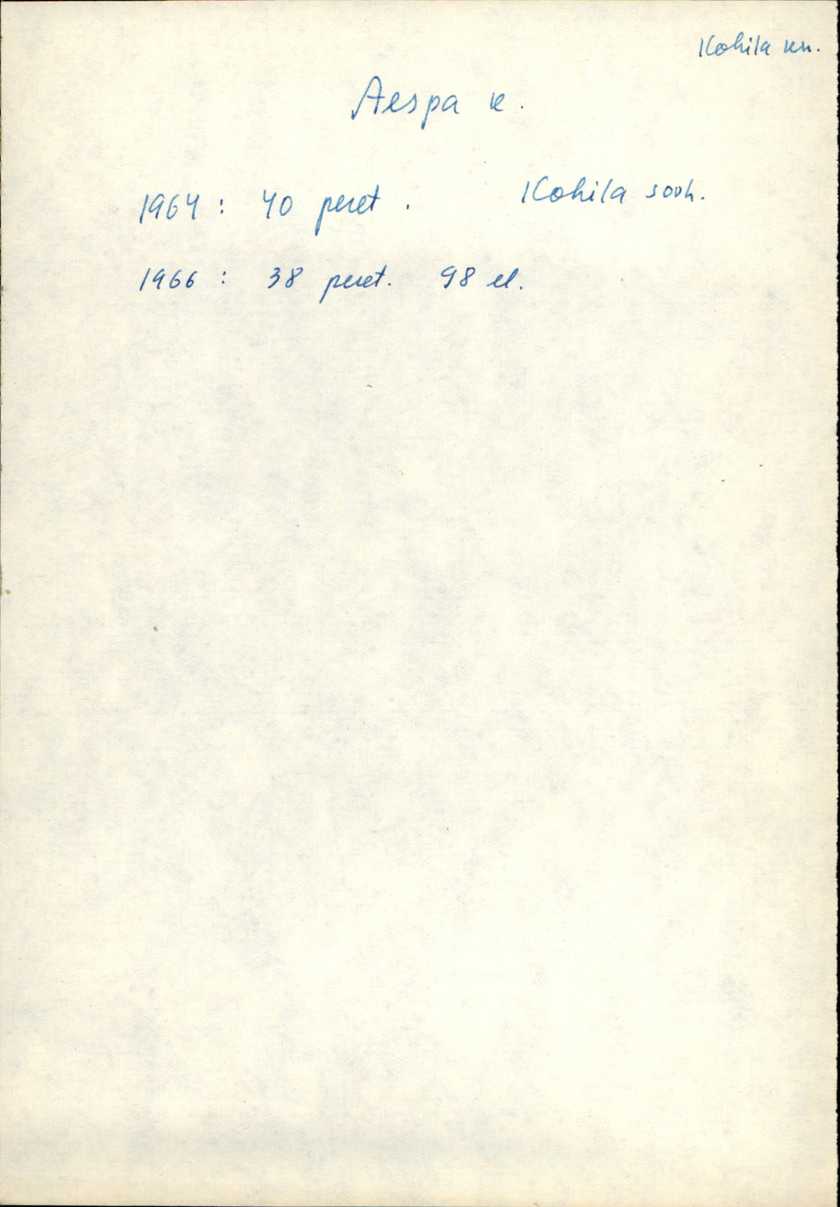 Kohila kn.
Aespa k.
1964 : 40 peret. Kohila sovh.
1966 : 38 peret. 98 el.